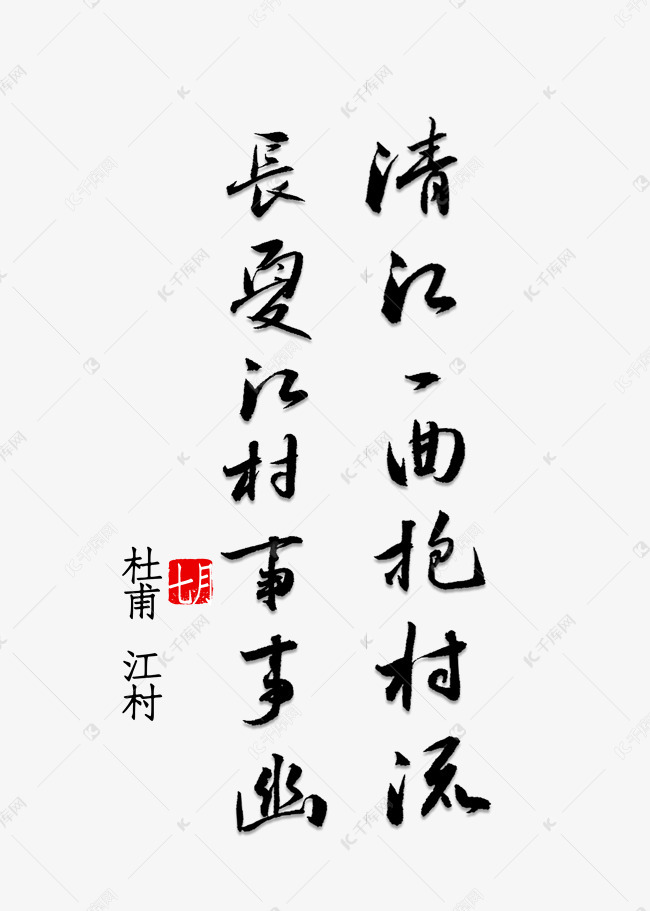 清江一曲抱村流
長夏江村事事幽
七月
杜甫 江村
千库网